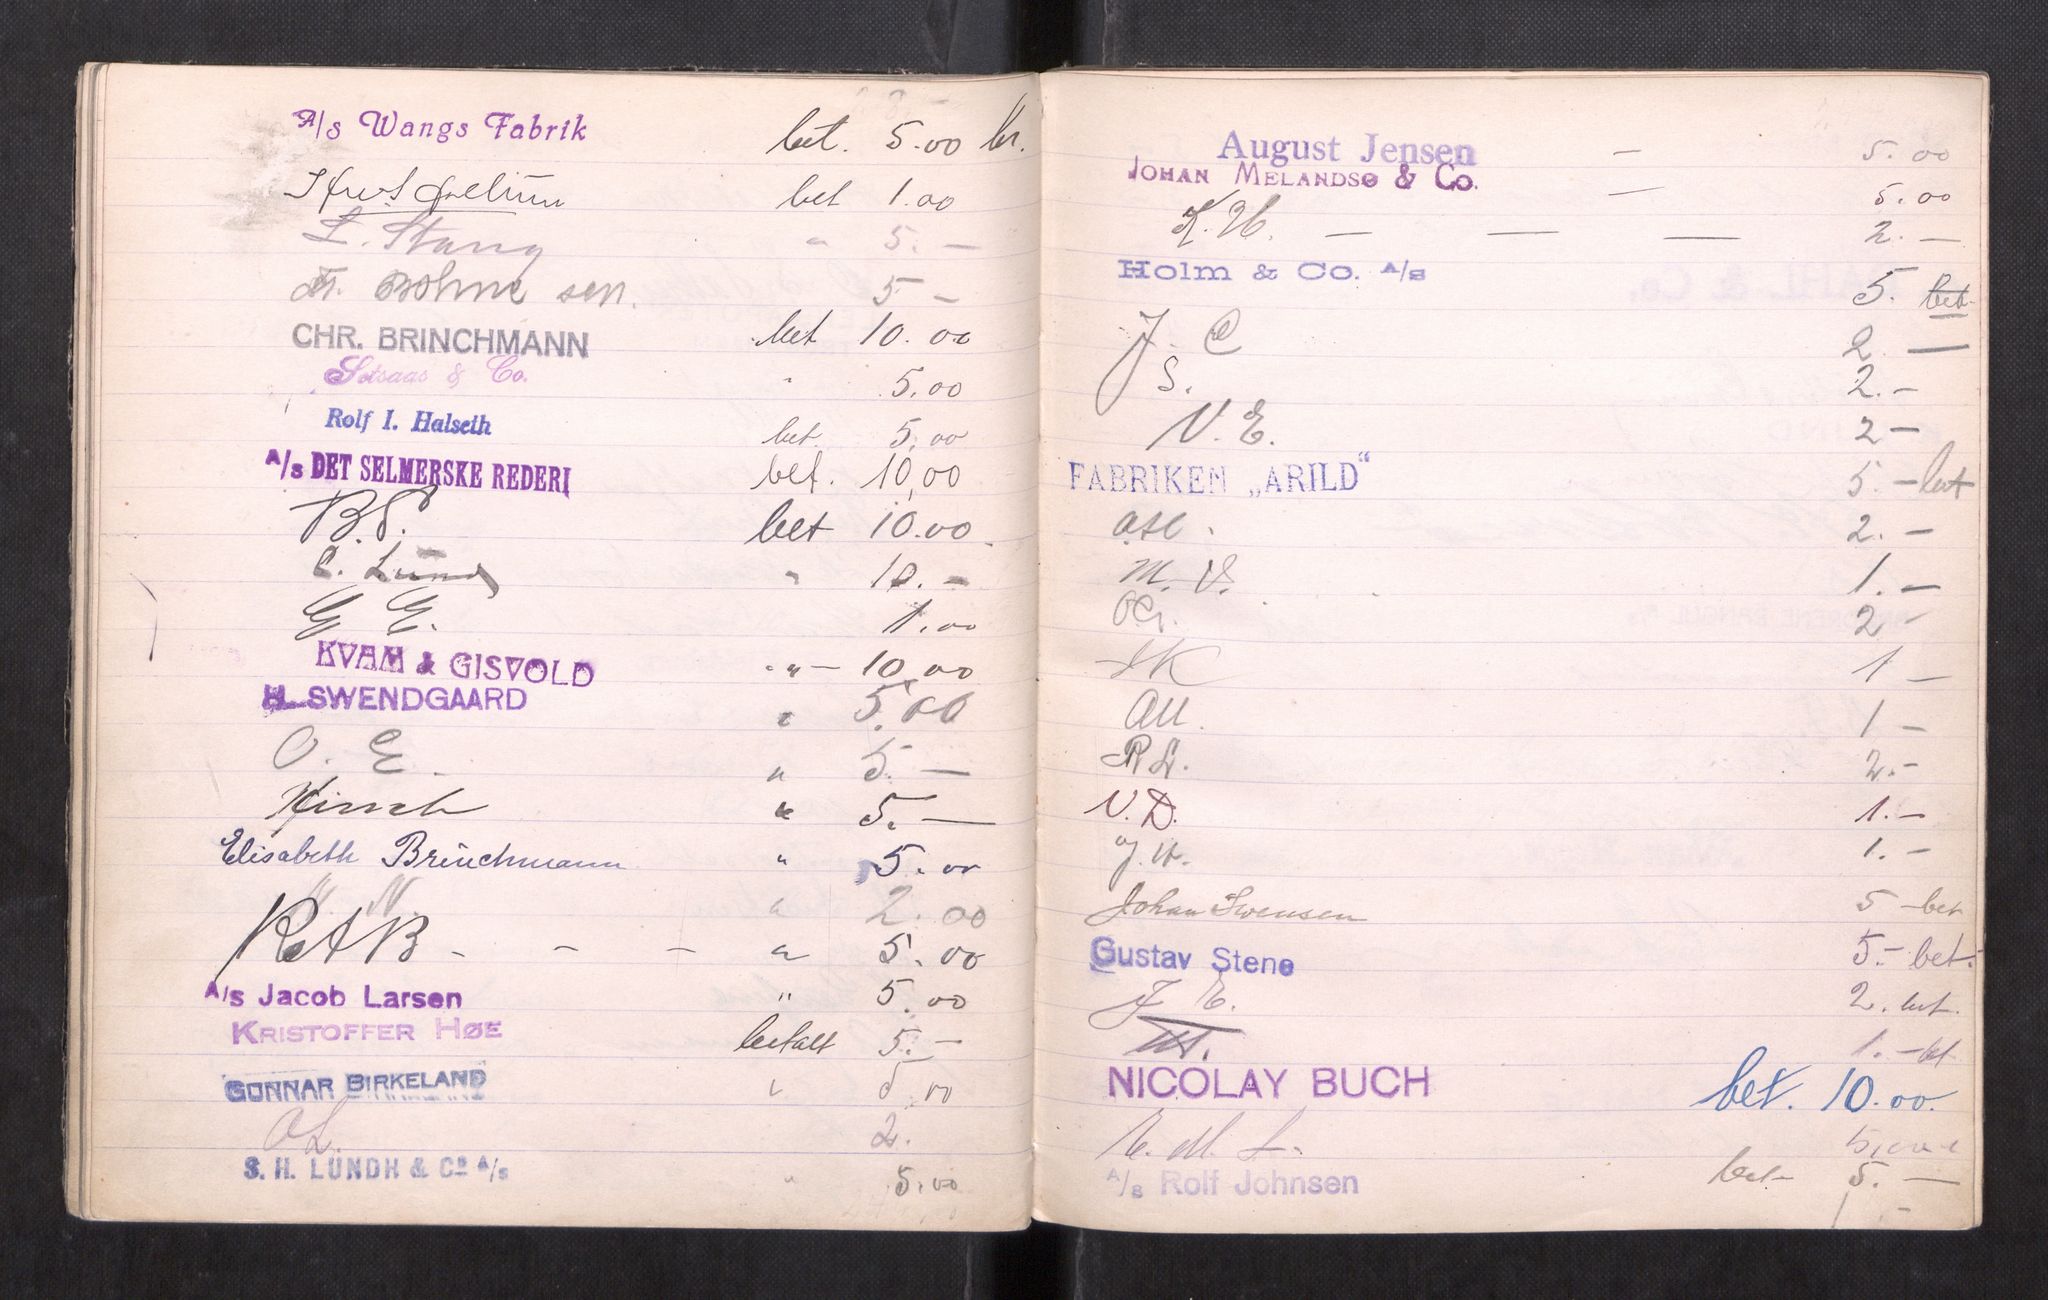 A/s Wangs Fabrik bet. 5.00 kr.
bet 1.00
L. Stang " 5. —
Fr. Bohme sen. 5 —
CHR. BRINCHMANN bet 10.00
Sotsaas & Co. " 5.00
Rolf I. Halseth bet. 5.00
A/s DET SELMERSKE REDERI bet. 10,00
B.P. bet 10.00
C. Lund " 10. —
G G. 1.00
KVAM & GISVOLD " — 10.00
H. SWENDGAARD " 5.00
O. E. " 5. —
Hirsch " 5. —
Elisabeth Brinchmann " 5.00
N. N. " 2.00
K A B - - - " 5.00
A/s Jacob Larsen " 5.00
KRISTOFFER HØE betalt 5. —
GUNNAR BIRKELAND " 5.00
O L. 2.
S. H. LUNDH & Co A/s " 5.00
August Jensen — 5.00
JOHAN MELANDSØ & Co. — 5.00
K. H. — — — 2. —
Holm & Co. A/s 5. bet.
J. C 2. —
J S. 2. —
N. E. 2 —
FABRIKEN „ARILD” 5. — bet
2. —
M. V. 1. —
2 —
K 1 —
1 —
R L. 2. —
N. D. 1. —
J. H. 1. —
Johan Swensen 5 — bet
Gustav Stene 5. — bet.
J E. 2. bet.
1. — bet
NICOLAY BUCH bet. 10.00.
E. M. L. 5.
A/s Rolf Johnsen bet — 5. —